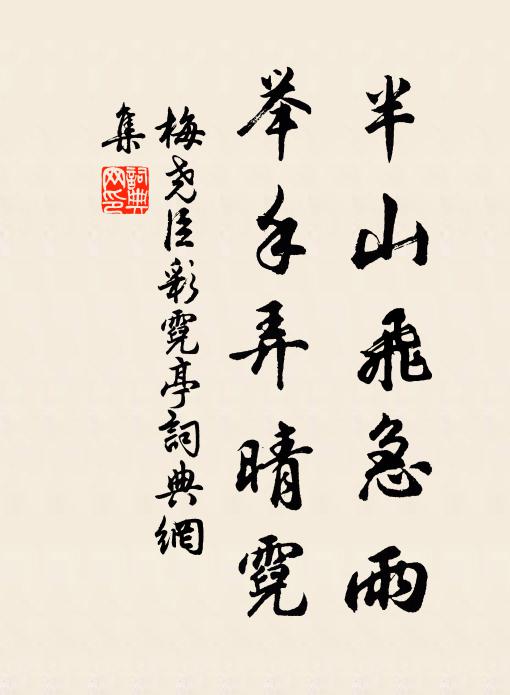 半山飛急雨
举手弄晴霓
梅尧臣彩霓亭詞典網
集
詞典
网印